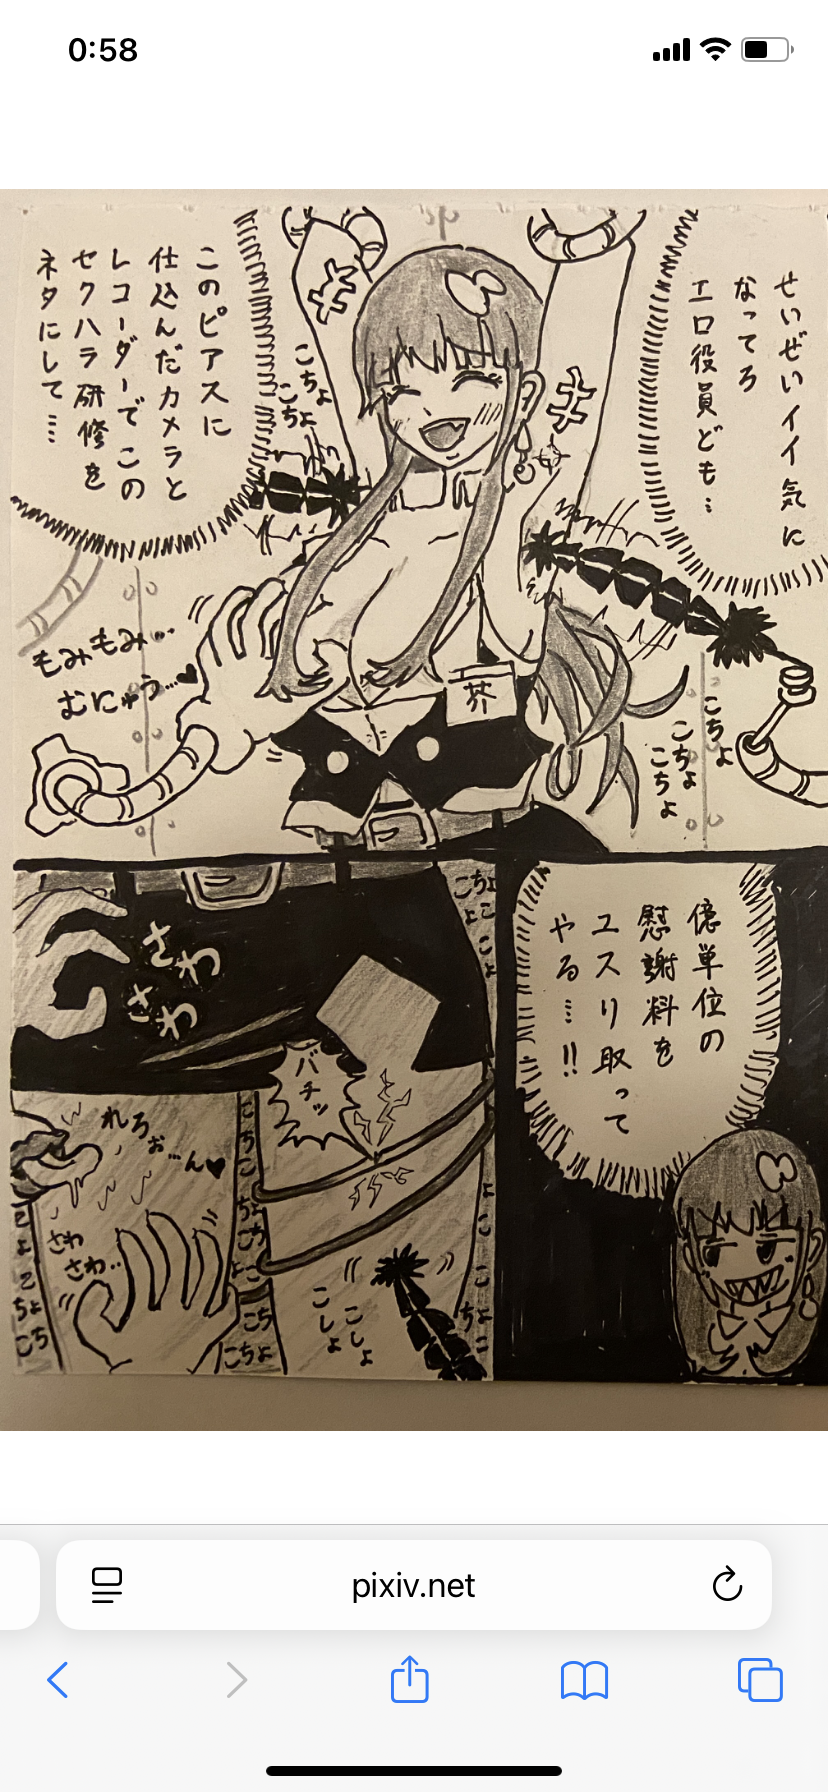 0:58
せいぜいイイ気に
なってろ
エロ役員ども…
このピアスに
仕込んだカメラと
レコーダーでこの
セクハラ研修を
ネタにして…
こちょ
こちょ
もみもみ…
むにゅう…♥
芥
こちょ
こちょ
こちょ
億単位の
慰謝料を
ユスり取って
やる…!!
さわ
さわ
バチッ
れろぉ…ん♥
さわ
さわ…
こしょ
こしょ
pixiv.net